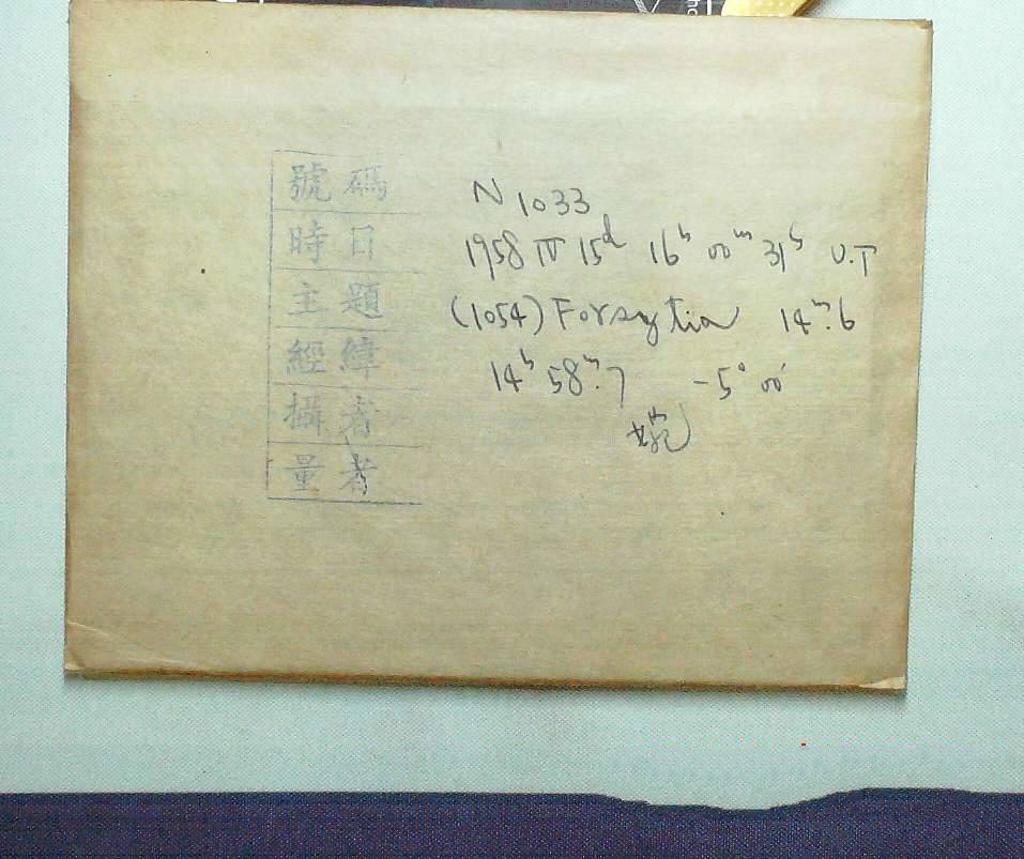 號碼 N 1033
時日 1958 IV 15ᵈ 16ʰ 00ᵐ 31ˢ U.T
主題 (1054) Forsytia 14ᵐ.6
經緯 14ʰ 58ᵐ.7 -5° 00'
攝者
量者